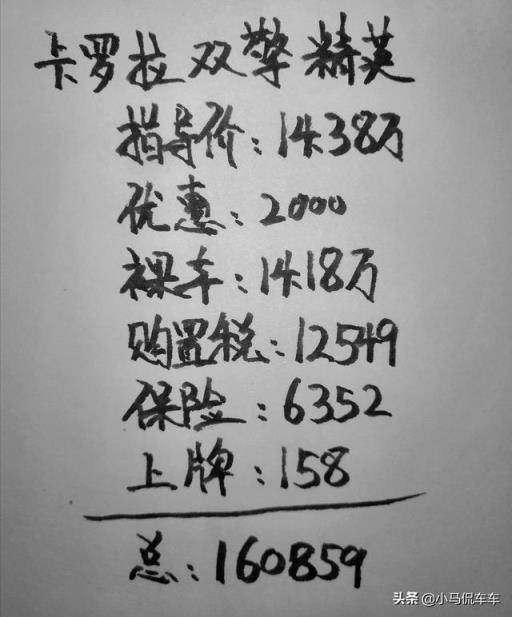 卡罗拉双擎精英
指导价：14.38万
优惠：2000
裸车：14.18万
购置税：12549
保险：6352
上牌：158
总：160859
头条 @小马侃车车